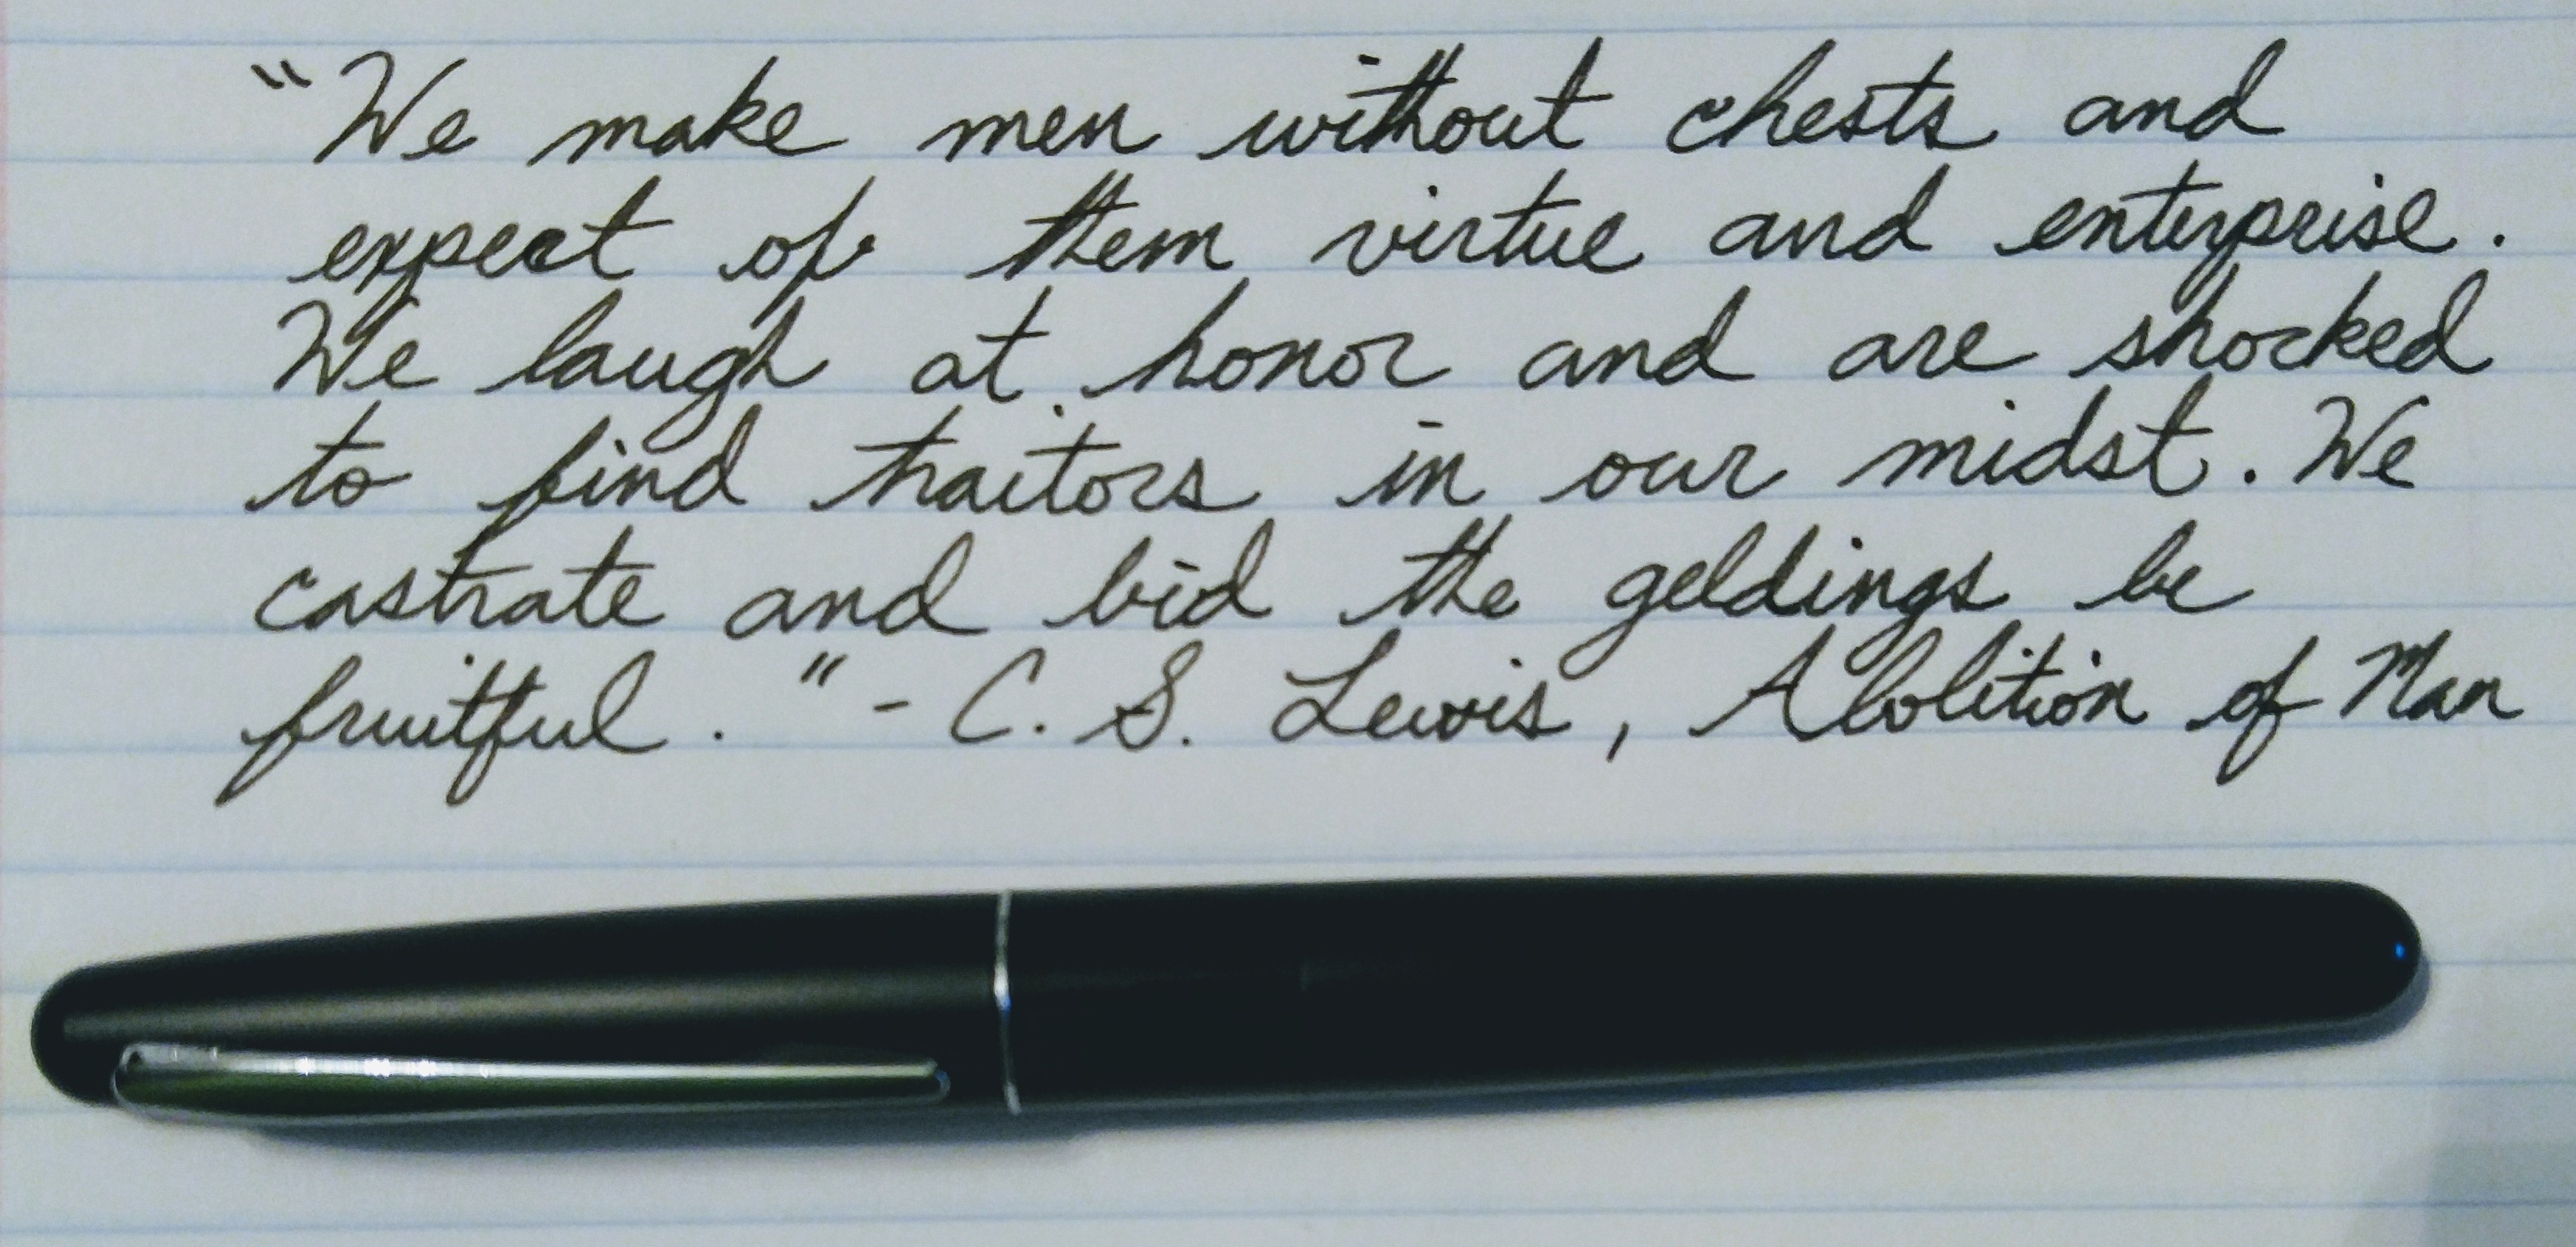 "We make men without chests and
expect of them virtue and enterprise.
We laugh at honor and are shocked
to find traitors in our midst. We
castrate and bid the geldings be
fruitful." - C. S. Lewis, Abolition of Man